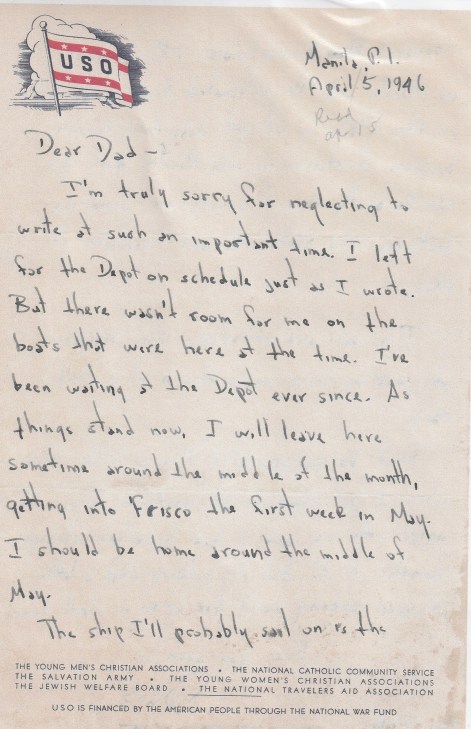 USO
Manila, P.I.
April 5, 1946
Recd
Apr 15
Dear Dad —
I'm truly sorry for neglecting to
write at such an important time. I left
for the Depot on schedule just as I wrote.
But there wasn't room for me on the
boats that were here at the time. I've
been waiting at the Depot ever since. As
things stand now, I will leave here
sometime around the middle of the month,
getting into Frisco the first week in May.
I should be home around the middle of
May.
The ship I'll probably sail on is the
THE YOUNG MEN'S CHRISTIAN ASSOCIATIONS • THE NATIONAL CATHOLIC COMMUNITY SERVICE
THE SALVATION ARMY • THE YOUNG WOMEN'S CHRISTIAN ASSOCIATIONS
THE JEWISH WELFARE BOARD • THE NATIONAL TRAVELERS AID ASSOCIATION
USO IS FINANCED BY THE AMERICAN PEOPLE THROUGH THE NATIONAL WAR FUND